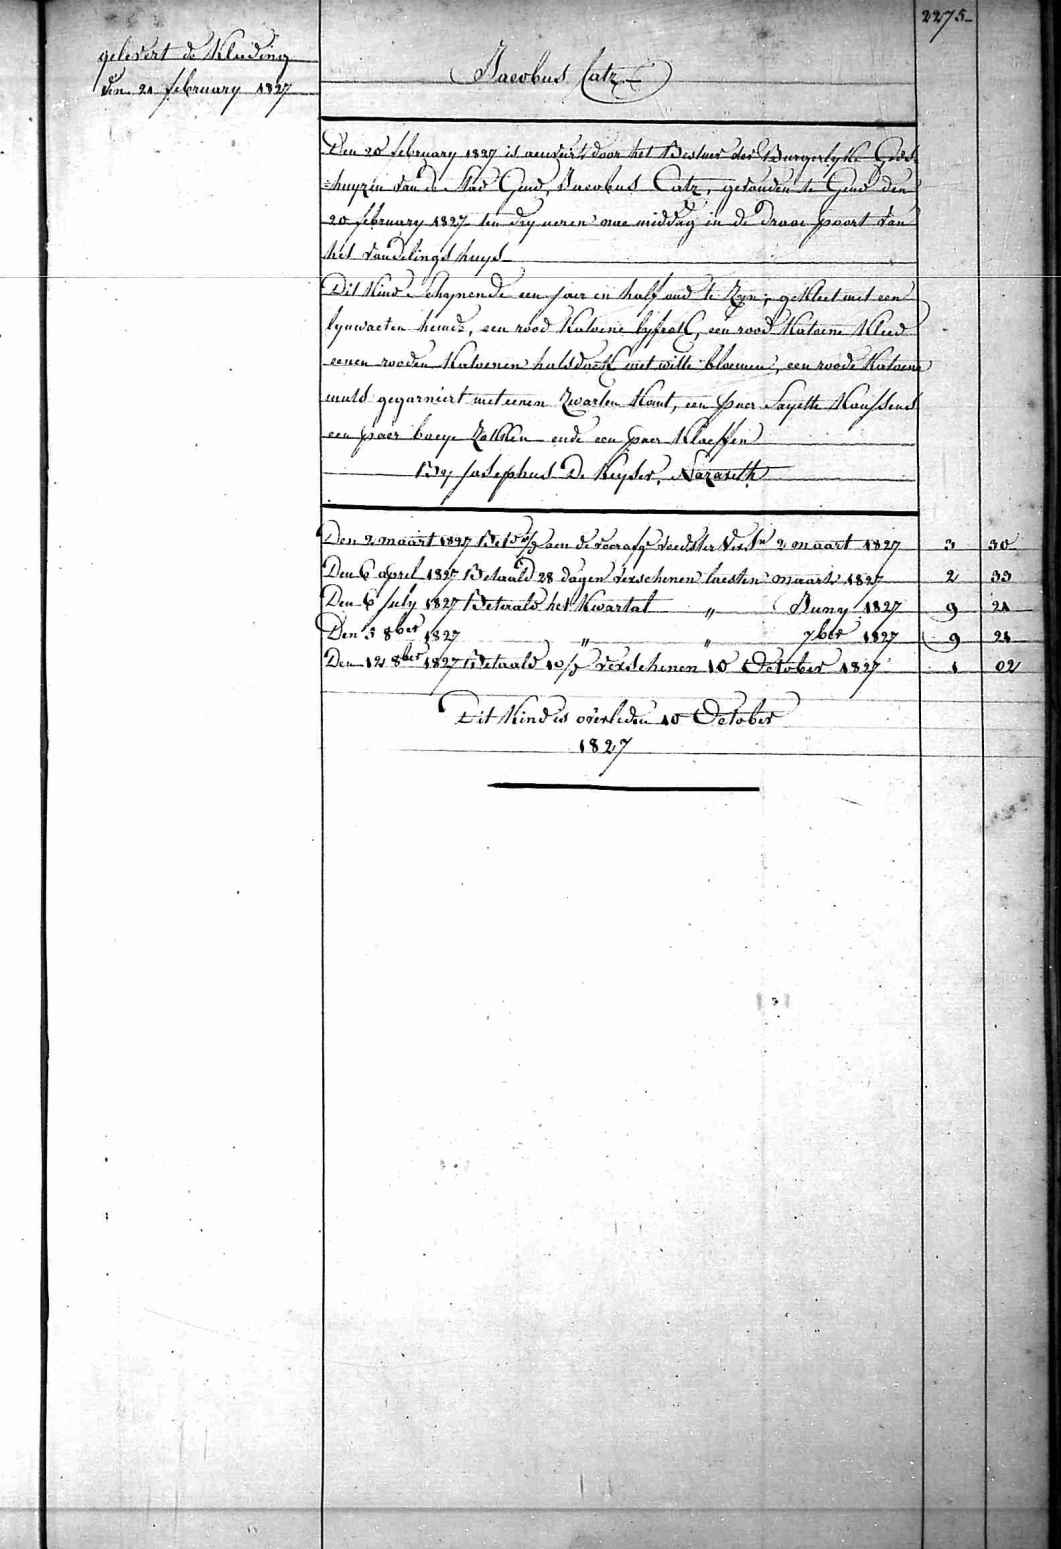 2275
gelevert de Kleeding
den 21 february 1827
Jacobus Catz
Den 20 february 1827 is aenveirt door het Bestuer der Burgerlyke Gods
=huyzen van de Stad Gend, Jacobus Catz, gevonden te Gend den
20 february 1827 ten dry ueren nae middag in de draei poort van
het vondelings huys
Dit Kind schynende een jaer en half oud te zyn, gekleet met een
lynwaeten hemde, een rood Katoene lyfrok, een rood Katoene Kleed
eenen rooden Katoenen halsdoek met witte bloemen, een roode Katoene
muts gegarniert met eenen zwarten Kant, een paer Sayette Kaussens
een paer baeye zokken ende een paer Kloeffen
By Josephus De Keyser, Nazareth
Den 2 maart 1827 Bet. aen de voorafge voedster Versn 2 maart 1827 3 30
Den 6 april 1827 Betaald 28 dagen verschenen laesten maart 1827 2 33
Den 6 July 1827 Betaald het Kwartal „ Juny 1827 9 21
Den 5 8ber 1827 „ „ 7ber 1827 9 21
Den 12 8ber 1827 Betaald 10/d verschenen 10 October 1827 1 02
Dit Kind is overleden 10 October
1827